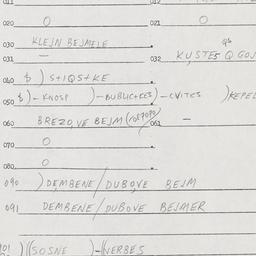 011 012
020 O 021 O
030 KLEJN BEJMELE
031 — 032 KUSTES Q GOJ
040 $ ) S+IQS+KE
050 $) - KNOSP ) - BUBLIC+KES ) - CVITES ) KEPEL
060 BREZOVE BEJM 061 —
070 O
080 O
090 ) DEMBENE / DUBOVE BEJM
091 DEMBENE / DUBOVE BEJMER
101 ) ((SOSNE ) - ((VERBES